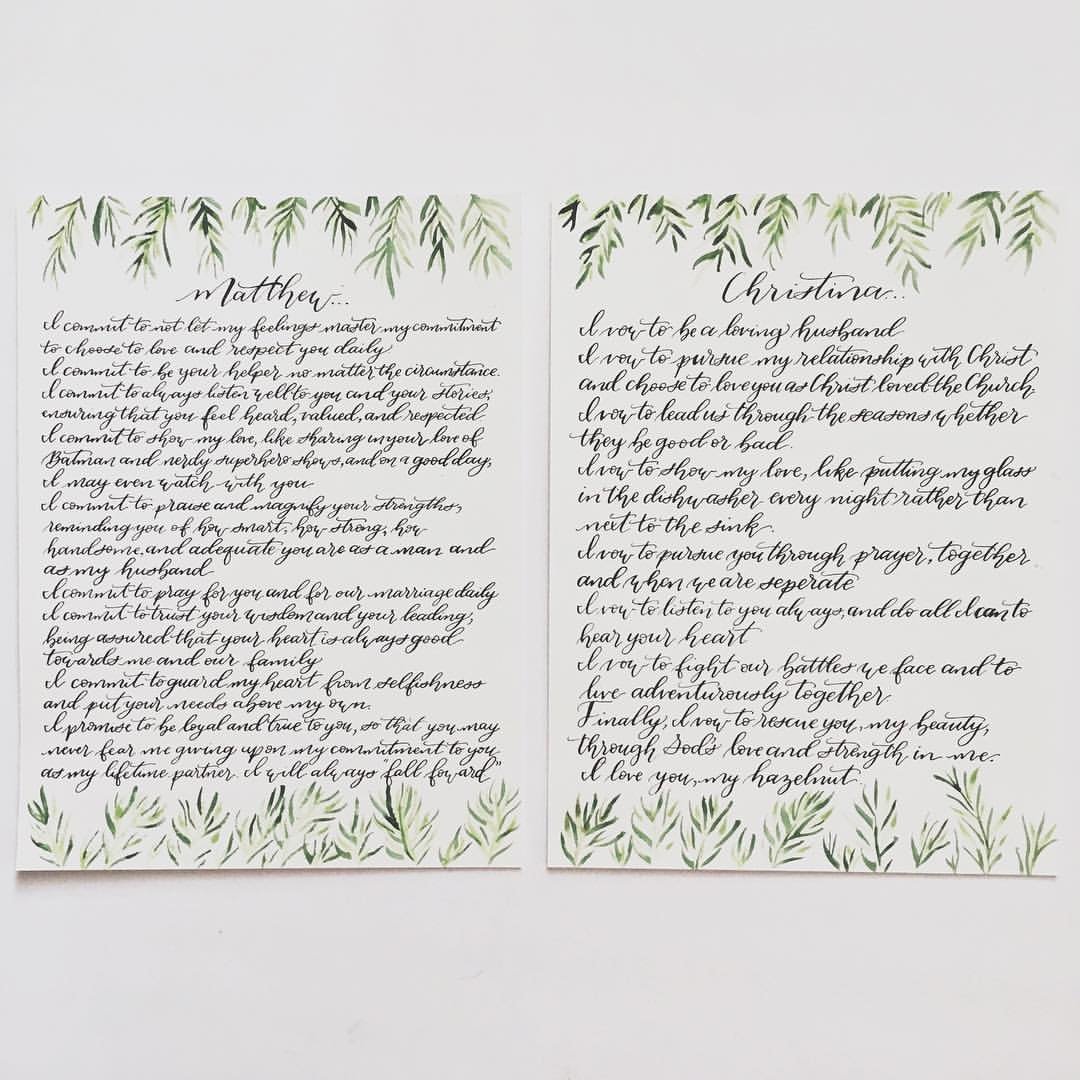 Matthew...
I commit to not let my feelings master my commitment
to choose to love and respect you daily
I commit to be your helper no matter the circumstance.
I commit to always listen well to you and your stories,
ensuring that you feel heard, valued, and respected
I commit to show my love, like sharing in your love of
Batman and nerdy superhero shows, and on a good day,
I may even watch with you
I commit to praise and magnify your strengths,
reminding you of how smart, how strong, how
handsome, and adequate you are as a man and
as my husband
I commit to pray for you and for our marriage daily
I commit to trust your wisdom and your leading,
being assured that your heart is always good
towards me and our family
I commit to guard my heart from selfishness
and put your needs above my own.
I promise to be loyal and true to you, so that you may
never fear me giving upon my commitment to you
as my lifetime partner. I will always "fall forward"
Christina...
I vow to be a loving husband
I vow to pursue my relationship with Christ
and choose to love you as Christ loved the Church.
I vow to lead us through the seasons whether
they be good or bad.
I vow to show my love, like putting my glass
in the dishwasher every night rather than
next to the sink.
I vow to pursue you through prayer, together
and when we are seperate
I vow to listen to you always, and do all I can to
hear your heart
I vow to fight our battles we face and to
live adventurously together.
Finally, I vow to rescue you, my beauty,
through God's love and strength in me.
I love you, my hazelnut.